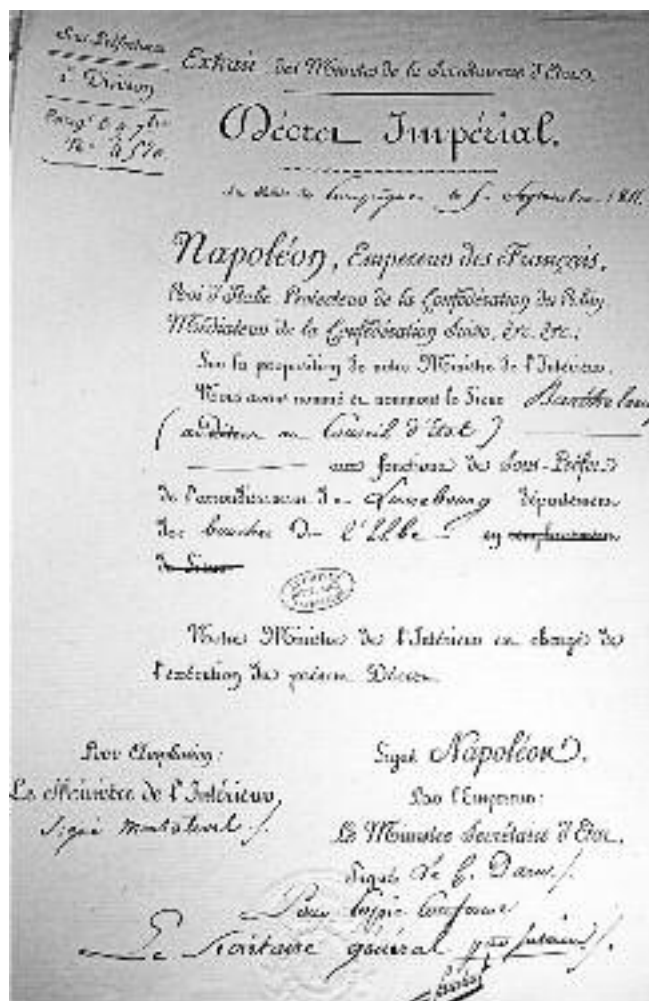 Sous Préfectures
1e Division
Extrait des Minutes de la Secrétairerie d'Etat.
Décret Impérial.
Au Palais de Compiègne le 5 Septembre 1811.
Napoléon, Empereur des Français,
Roi d'Italie Protecteur de la Confédération du Rhin
Médiateur de la Confédération Suisse, &c. &c. &c.
Sur la proposition de notre Ministre de l'Intérieur.
Nous avons nommé et nommons le Sieur Barthélemy
(auditeur au Conseil d'Etat)
aux fonctions de Sous-Préfet
de l'arrondissement de Lunebourg département
des bouches de l'Elbe en remplacement
du Sieur
Notre Ministre de l'Intérieur est chargé de
l'exécution du présent Décret
Signé Napoléon.
Pour Ampliation:
Le Ministre de l'Intérieur,
Signé Montalivet
Par l'Empereur:
Le Ministre Secrétaire d'Etat,
Signé Le C. Daru
Pour Copie Conforme
Le Secrétaire général